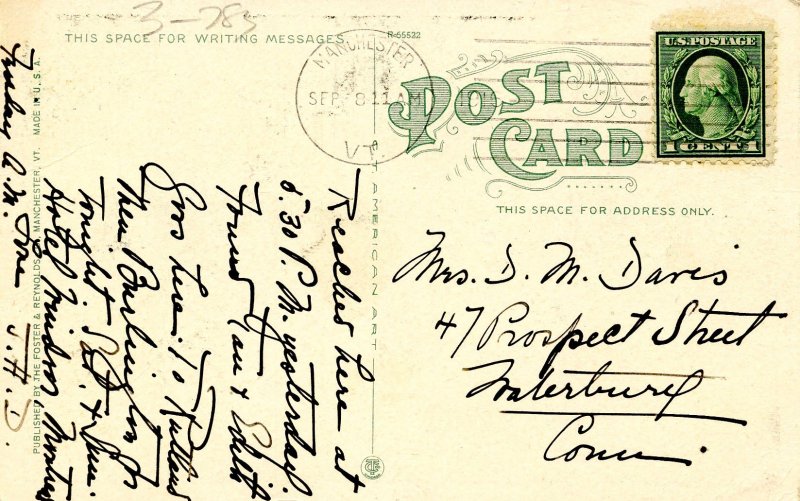 3-783
THIS SPACE FOR WRITING MESSAGES.
R-55522
MANCHESTER
SEP 8 11 AM
VT
U.S. POSTAGE
1 CENT 1
POST
CARD
THIS SPACE FOR ADDRESS ONLY.
Mrs. D. M. Davis
47 Prospect Street
Waterbury
Conn.
AMERICAN ART
Reached here at
5.30 P.M. yesterday.
Found & Edith
Goos here. To Rutland
then Burlington for
tonight. Sat. & Sun.
Hotel Windsor,
Friday A.M. Fine J.H.D.
PUBLISHED BY THE FOSTER & REYNOLDS MANCHESTER, VT. MADE IN U.S.A.